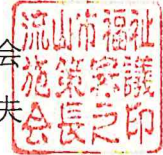 会
夫
流山市福祉
施策審議
会長之印